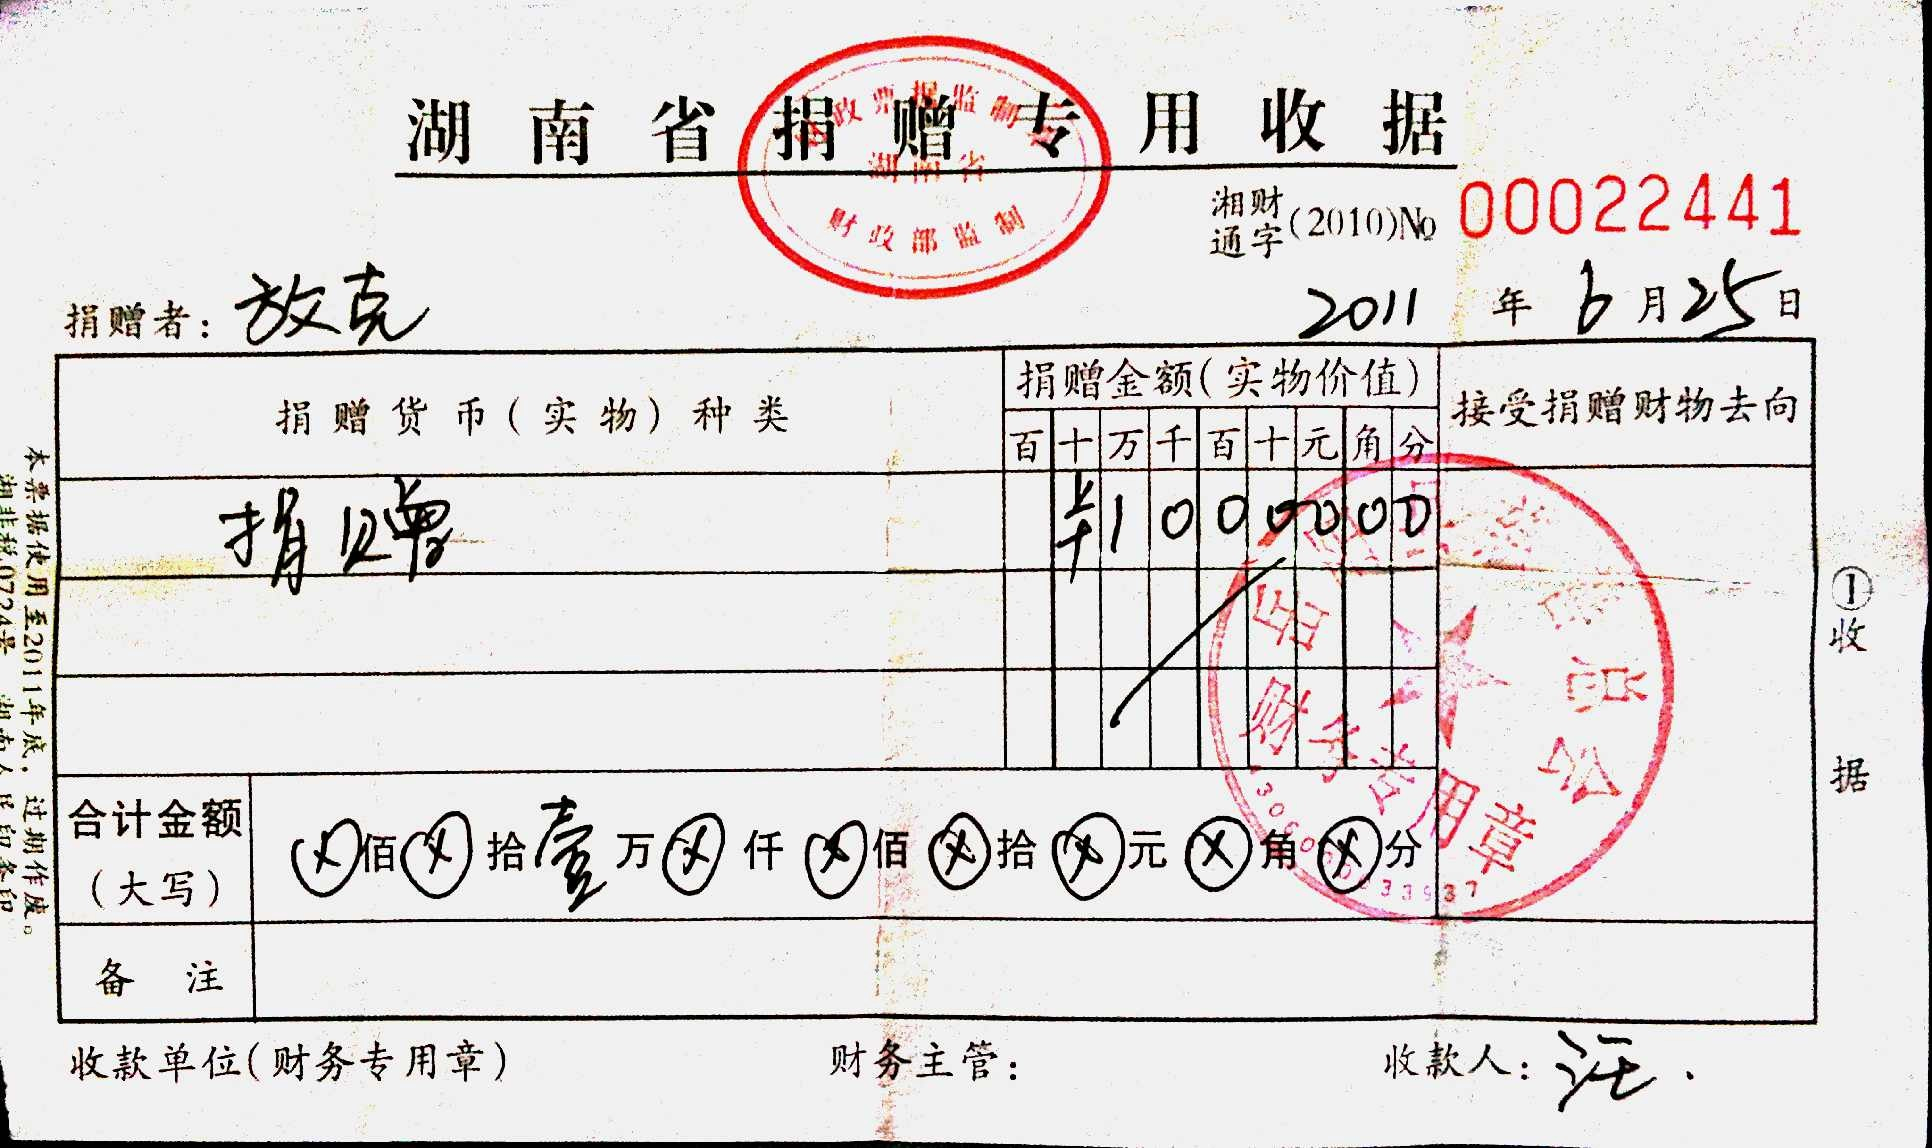 湖南省捐赠专用收据
财政票据监制章
湖南省
财政部监制
湘财通字(2010)№ 00022441
捐赠者：放克 2011年6月25日
捐赠货币(实物)种类 捐赠金额(实物价值) 接受捐赠财物去向
百十万千百十元角分
捐赠 ¥10000000
合计金额(大写) ⊗佰⊗拾壹万⊗仟⊗佰⊗拾⊗元⊗角⊗分
备注
收款单位(财务专用章) 财务主管： 收款人：汪
本票据使用至2011年底，过期作废。
①收据
财务专用章